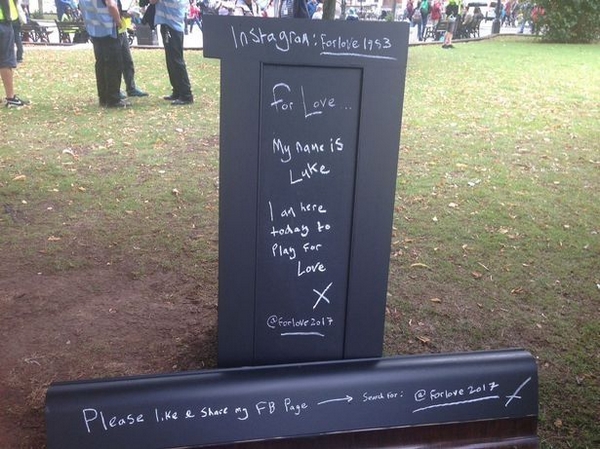 Instagram: forlove1953
For Love ...
My name is
Luke
I am here
today to
Play for
Love
X
@forlove2017
Please like & share my FB Page → Search for: @forlove2017 X